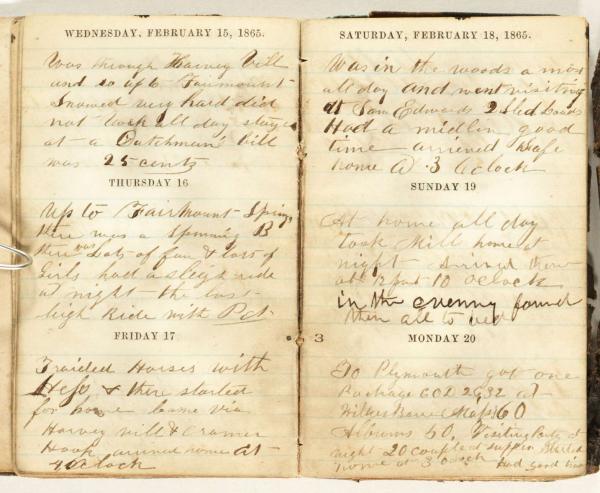 WEDNESDAY, FEBRUARY 15, 1865.
Was through Harvey Vill
and so up to Fairmount
Snowed very hard did
not look all day stayed
at a Dutchmans bill
was 25 cents
THURSDAY 16
Up to FairMount Springs
there was a Spinning B
there was Lots of fun & lots of
Girls had a sleigh ride
at night the last
sleigh Ride with Pet
FRIDAY 17
Traided Horses with
& there started
for home Came via
Harvey vill &
arrived home at
4 oclock
SATURDAY, FEBRUARY 18, 1865.
Was in the woods a most
all day and went visiting
at Sam Edwards 2 Sled Loads
Had a midlin good
time arrived safe
home at 3 oclock
SUNDAY 19
At home all day
took Mill home at
night arived there
at 10 oclock
in the evening found
them all to bed
3
MONDAY 20
To Plymouth got one
Package
Wilkes Barre 60
50. Visiting Party at
night 20 couple at supper Started
home at 3 oclock had good time